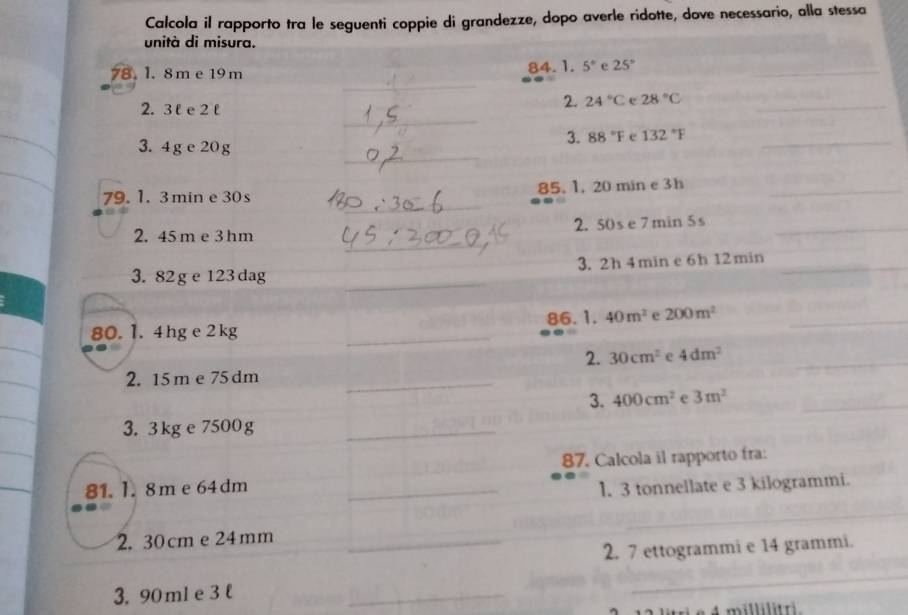 Calcola il rapporto tra le seguenti coppie di grandezze, dopo averle ridotte, dove necessario, alla stessa
unità di misura.
78. 1. 8 m e 19 m
2. 3 ℓ e 2 ℓ 1,5
3. 4 g e 20 g 0,2
79. 1. 3 min e 30 s 180 : 30 = 6
2. 45 m e 3 hm 45 : 300 = 0,15
3. 82 g e 123 dag
80. 1. 4 hg e 2 kg
2. 15 m e 75 dm
3. 3 kg e 7500 g
81. 1. 8 m e 64 dm
2. 30 cm e 24 mm
3. 90 ml e 3 ℓ
84. 1. 5° e 25°
2. 24 °C e 28 °C
3. 88 °F e 132 °F
85. 1. 20 min e 3 h
2. 50 s e 7 min 5 s
3. 2 h 4 min e 6 h 12 min
86. 1. 40 m² e 200 m²
2. 30 cm² e 4 dm²
3. 400 cm² e 3 m²
87. Calcola il rapporto fra:
1. 3 tonnellate e 3 kilogrammi.
2. 7 ettogrammi e 14 grammi.
litri e 4 millilitri.